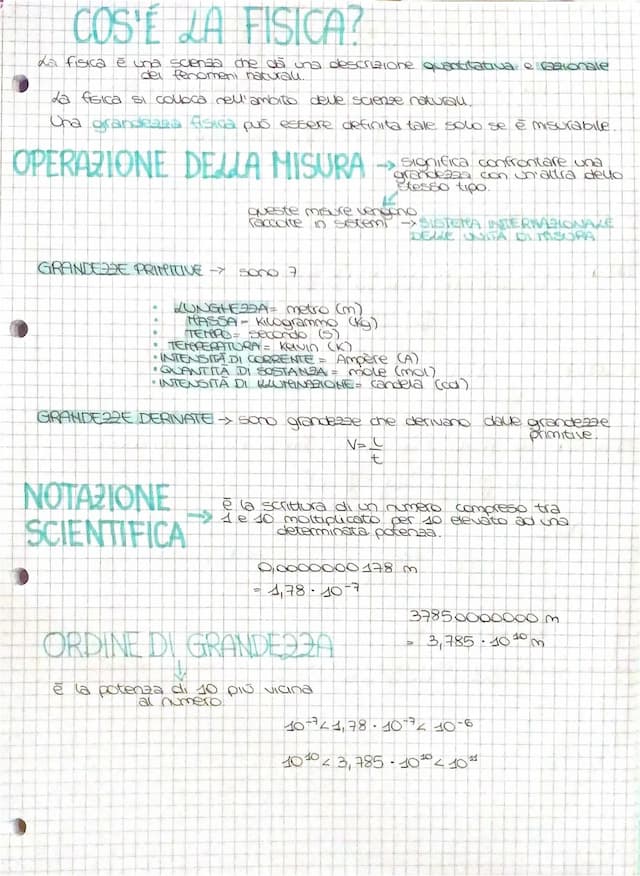 COS'É LA FISICA?
La fisica é una scienza che dá una descrizione quantitativa e razionale
dei fenomeni naturali.
La fisica si colloca nell'ambito delle scienze naturali.
Una grandezza fisica puó essere definita tale solo se é misurabile.
OPERAZIONE DELLA MISURA → significa confrontare una
grandezza con un'altra dello
stesso tipo.
queste misure vengono
raccolte in sistemi → SISTEMA INTERNAZIONALE
DELLE UNITÁ DI MISURA
GRANDEZZE PRIMITIVE → sono 7
• LUNGHEZZA = metro (m)
• MASSA = kilogrammo (kg)
• TEMPO = secondo (s)
• TEMPERATURA = Kelvin (K)
• INTENSITÁ DI CORRENTE = Ampère (A)
• QUANTITÁ DI SOSTANZA = mole (mol)
• INTENSITÁ DI ILLUMINAZIONE = candela (cd)
GRANDEZZE DERIVATE → sono grandezze che derivano dalle grandezze
primitive.
V = L/t
NOTAZIONE
SCIENTIFICA → é la scrittura di un numero compreso tra
1 e 10 moltiplicato per 10 elevato ad una
determinata potenza.
0,0000000178 m
= 1,78 · 10⁻⁷
37850000000 m
= 3,785 · 10¹⁰ m
ORDINE DI GRANDEZZA
é la potenza di 10 piú vicina
al numero
10⁻⁷ < 1,78 · 10⁻⁷ < 10⁻⁶
10¹⁰ < 3,785 · 10¹⁰ < 10¹¹